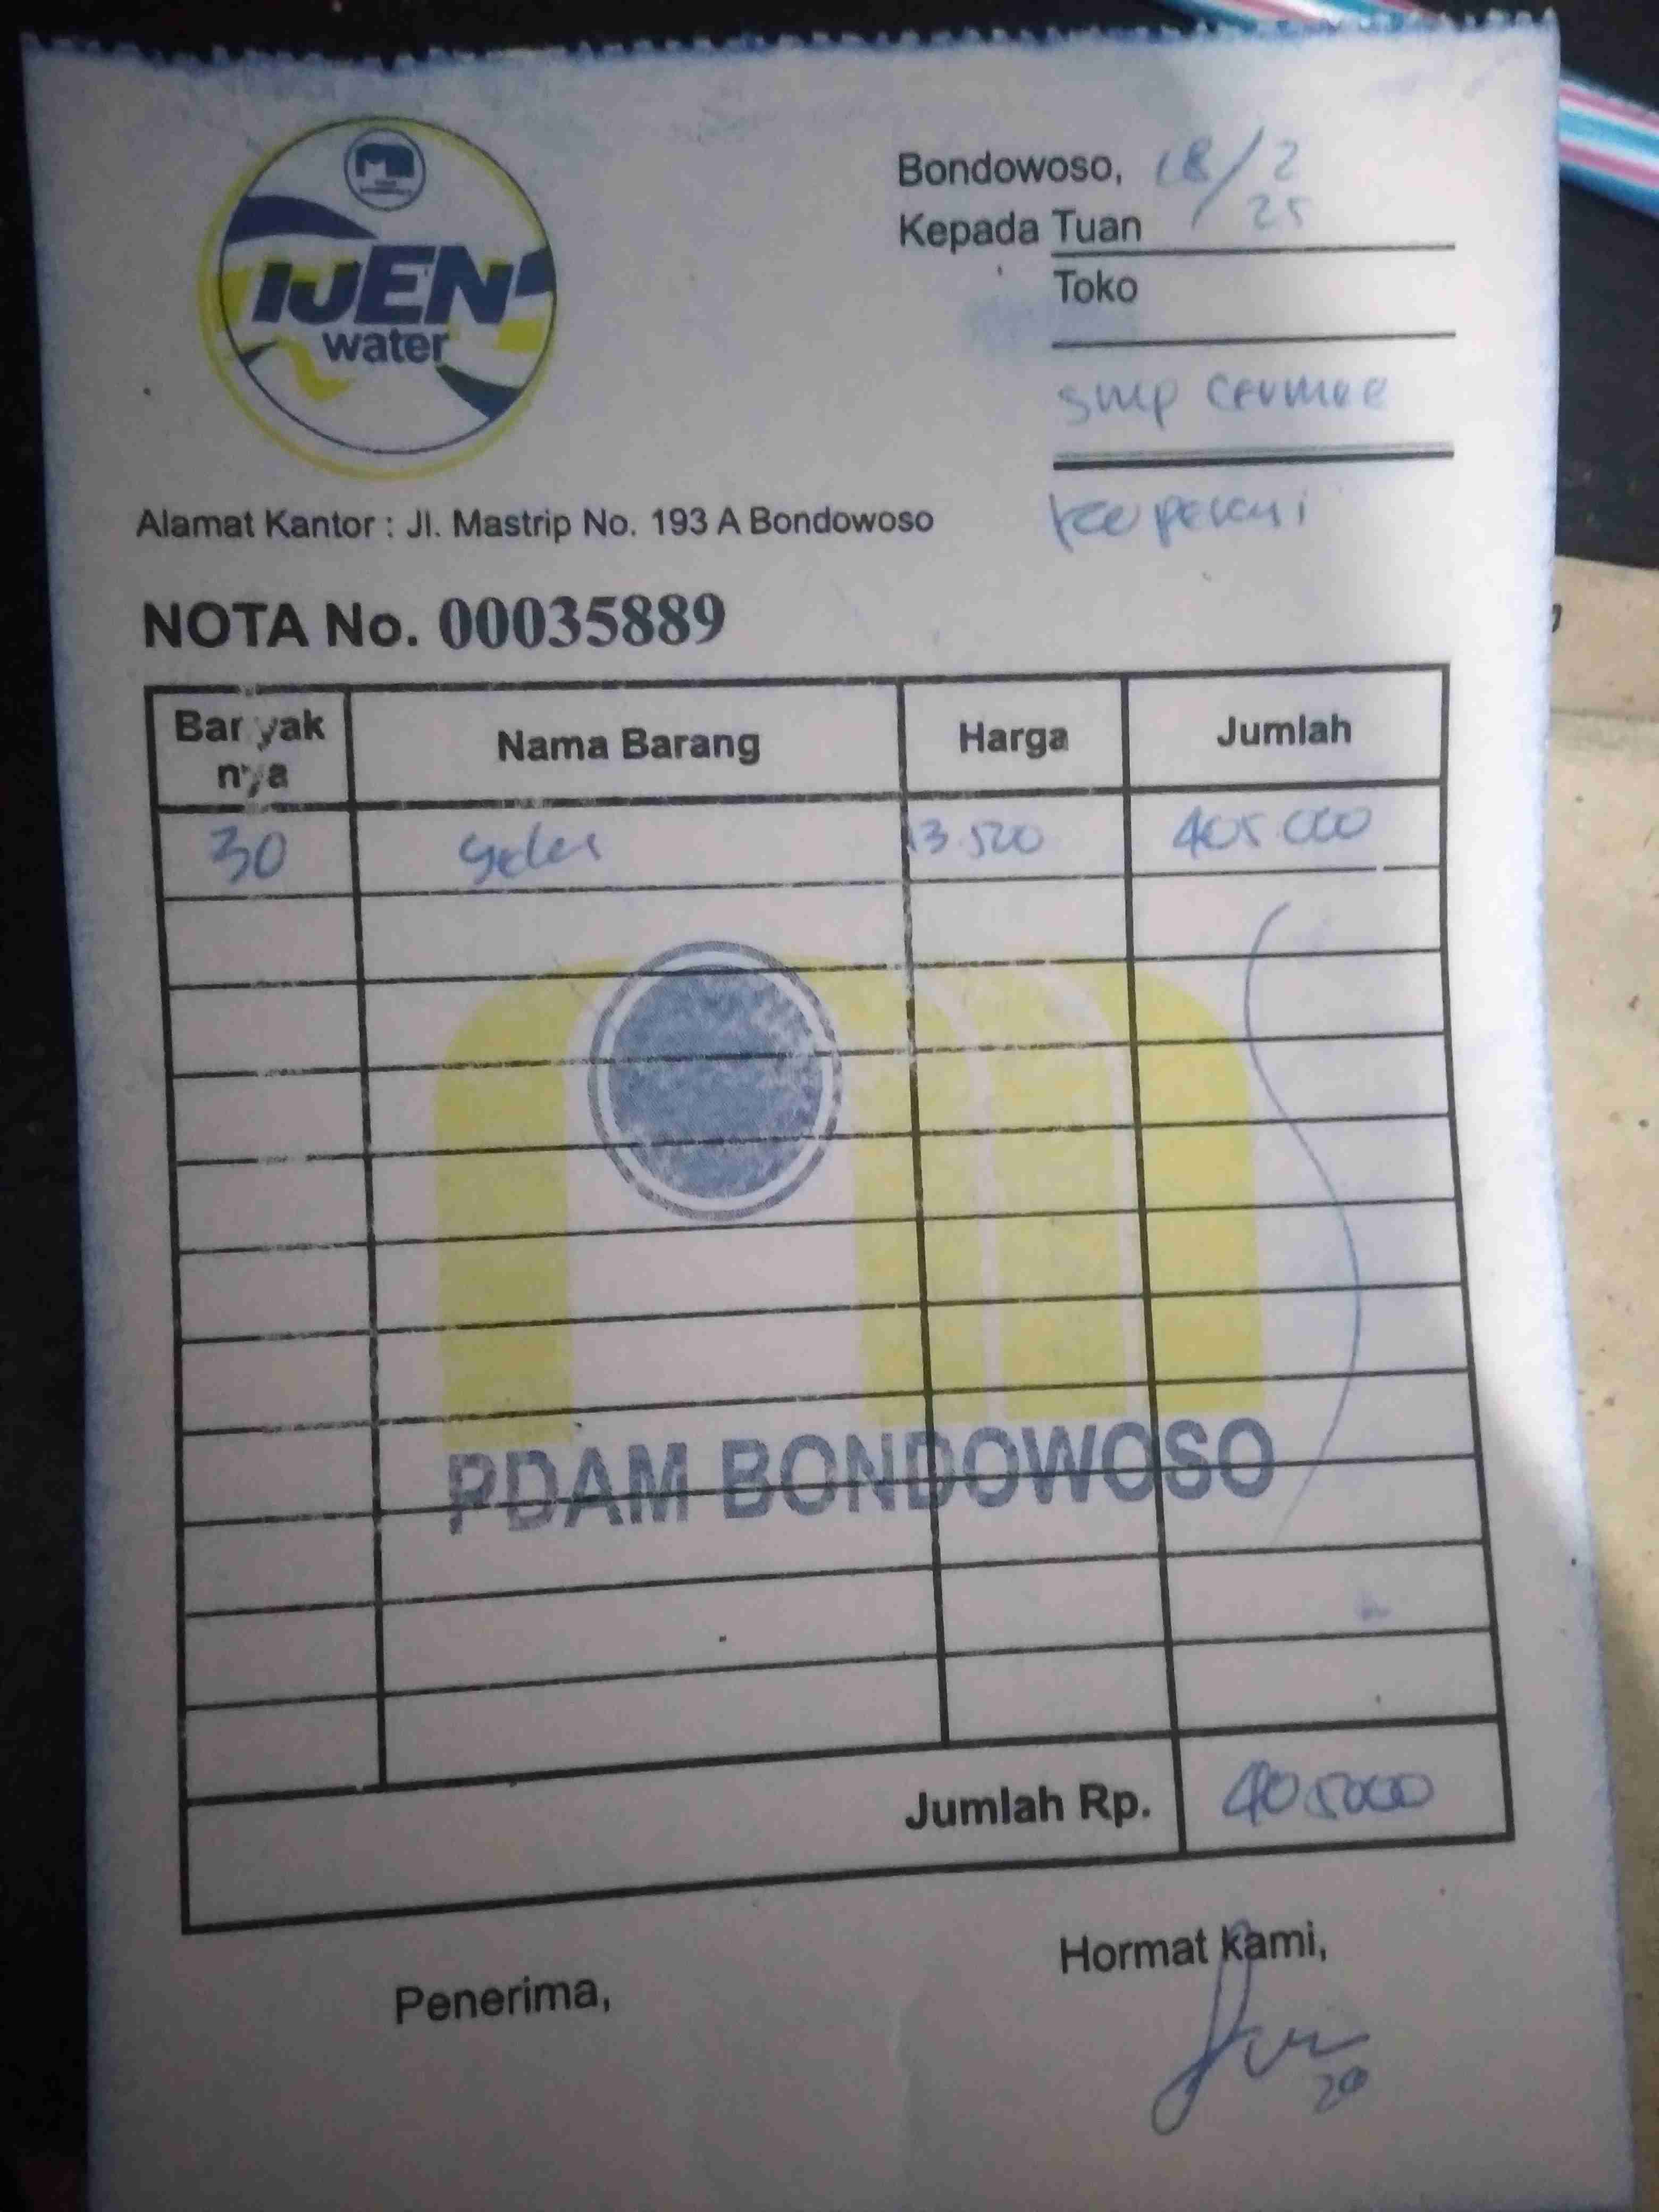 IJEN
water
Bondowoso, 18/2
25
Kepada Tuan
Toko
SMP Cermee
Koperasi
Alamat Kantor : Jl. Mastrip No. 193 A Bondowoso
NOTA No. 00035889
Banyak nya Nama Barang Harga Jumlah
30 gelas 13.500 405.000
PDAM BONDOWOSO
Jumlah Rp. 405000
Penerima, Hormat kami,